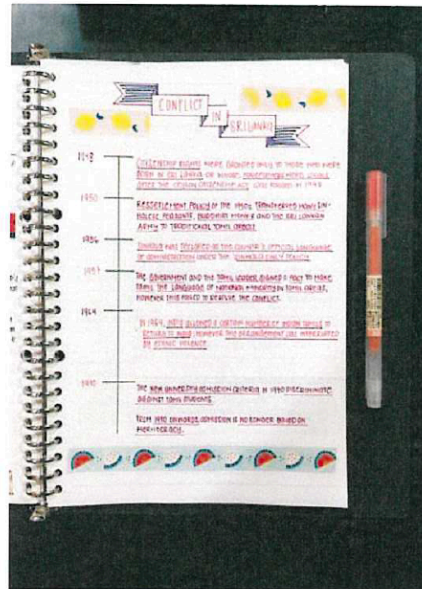 CONFLICT
IN
SRI LANKA
1948
CITIZENSHIP RIGHTS WERE GRANTED ONLY TO THOSE WHO WERE
BORN IN SRI LANKA OR WHOSE
AFTER THE CEYLON CITIZENSHIP ACT WAS PASSED IN 1948
1950
RESETTLEMENT POLICY OF THE 1950s TRANSFERRED MANY SIN-
HALESE PEASANTS, BUDDHIST MONKS AND THE SRI LANKAN
ARMY TO TRADITIONAL TAMIL AREAS.
1956
SINHALA WAS DECLARED AS THE COUNTRY'S OFFICIAL LANGUAGE
OF ADMINISTRATION UNDER THE SINHALA ONLY POLICY.
1957
THE GOVERNMENT AND THE TAMIL LEADER SIGNED A PACT TO MAKE
TAMIL THE LANGUAGE OF NATIONAL MINORITY IN TAMIL AREAS,
HOWEVER THIS FAILED TO RESOLVE THE CONFLICT.
1964
IN 1964, INDIA ALLOWED A CERTAIN NUMBER OF INDIAN TAMILS TO
RETURN TO INDIA; HOWEVER THE ARRANGEMENT WAS INTERRUPTED
BY ETHNIC VIOLENCE.
1970
THE NEW UNIVERSITY ADMISSION CRITERIA IN 1970 DISCRIMINATE
AGAINST TAMIL STUDENTS.
FROM 1970 ONWARDS, ADMISSION IS NO LONGER BASED ON
MERITOCRACY.